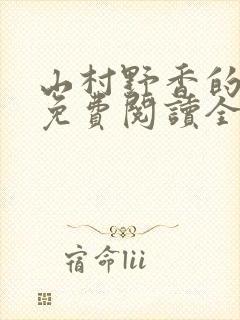 山村野香的
免費閱讀全
宿命lii